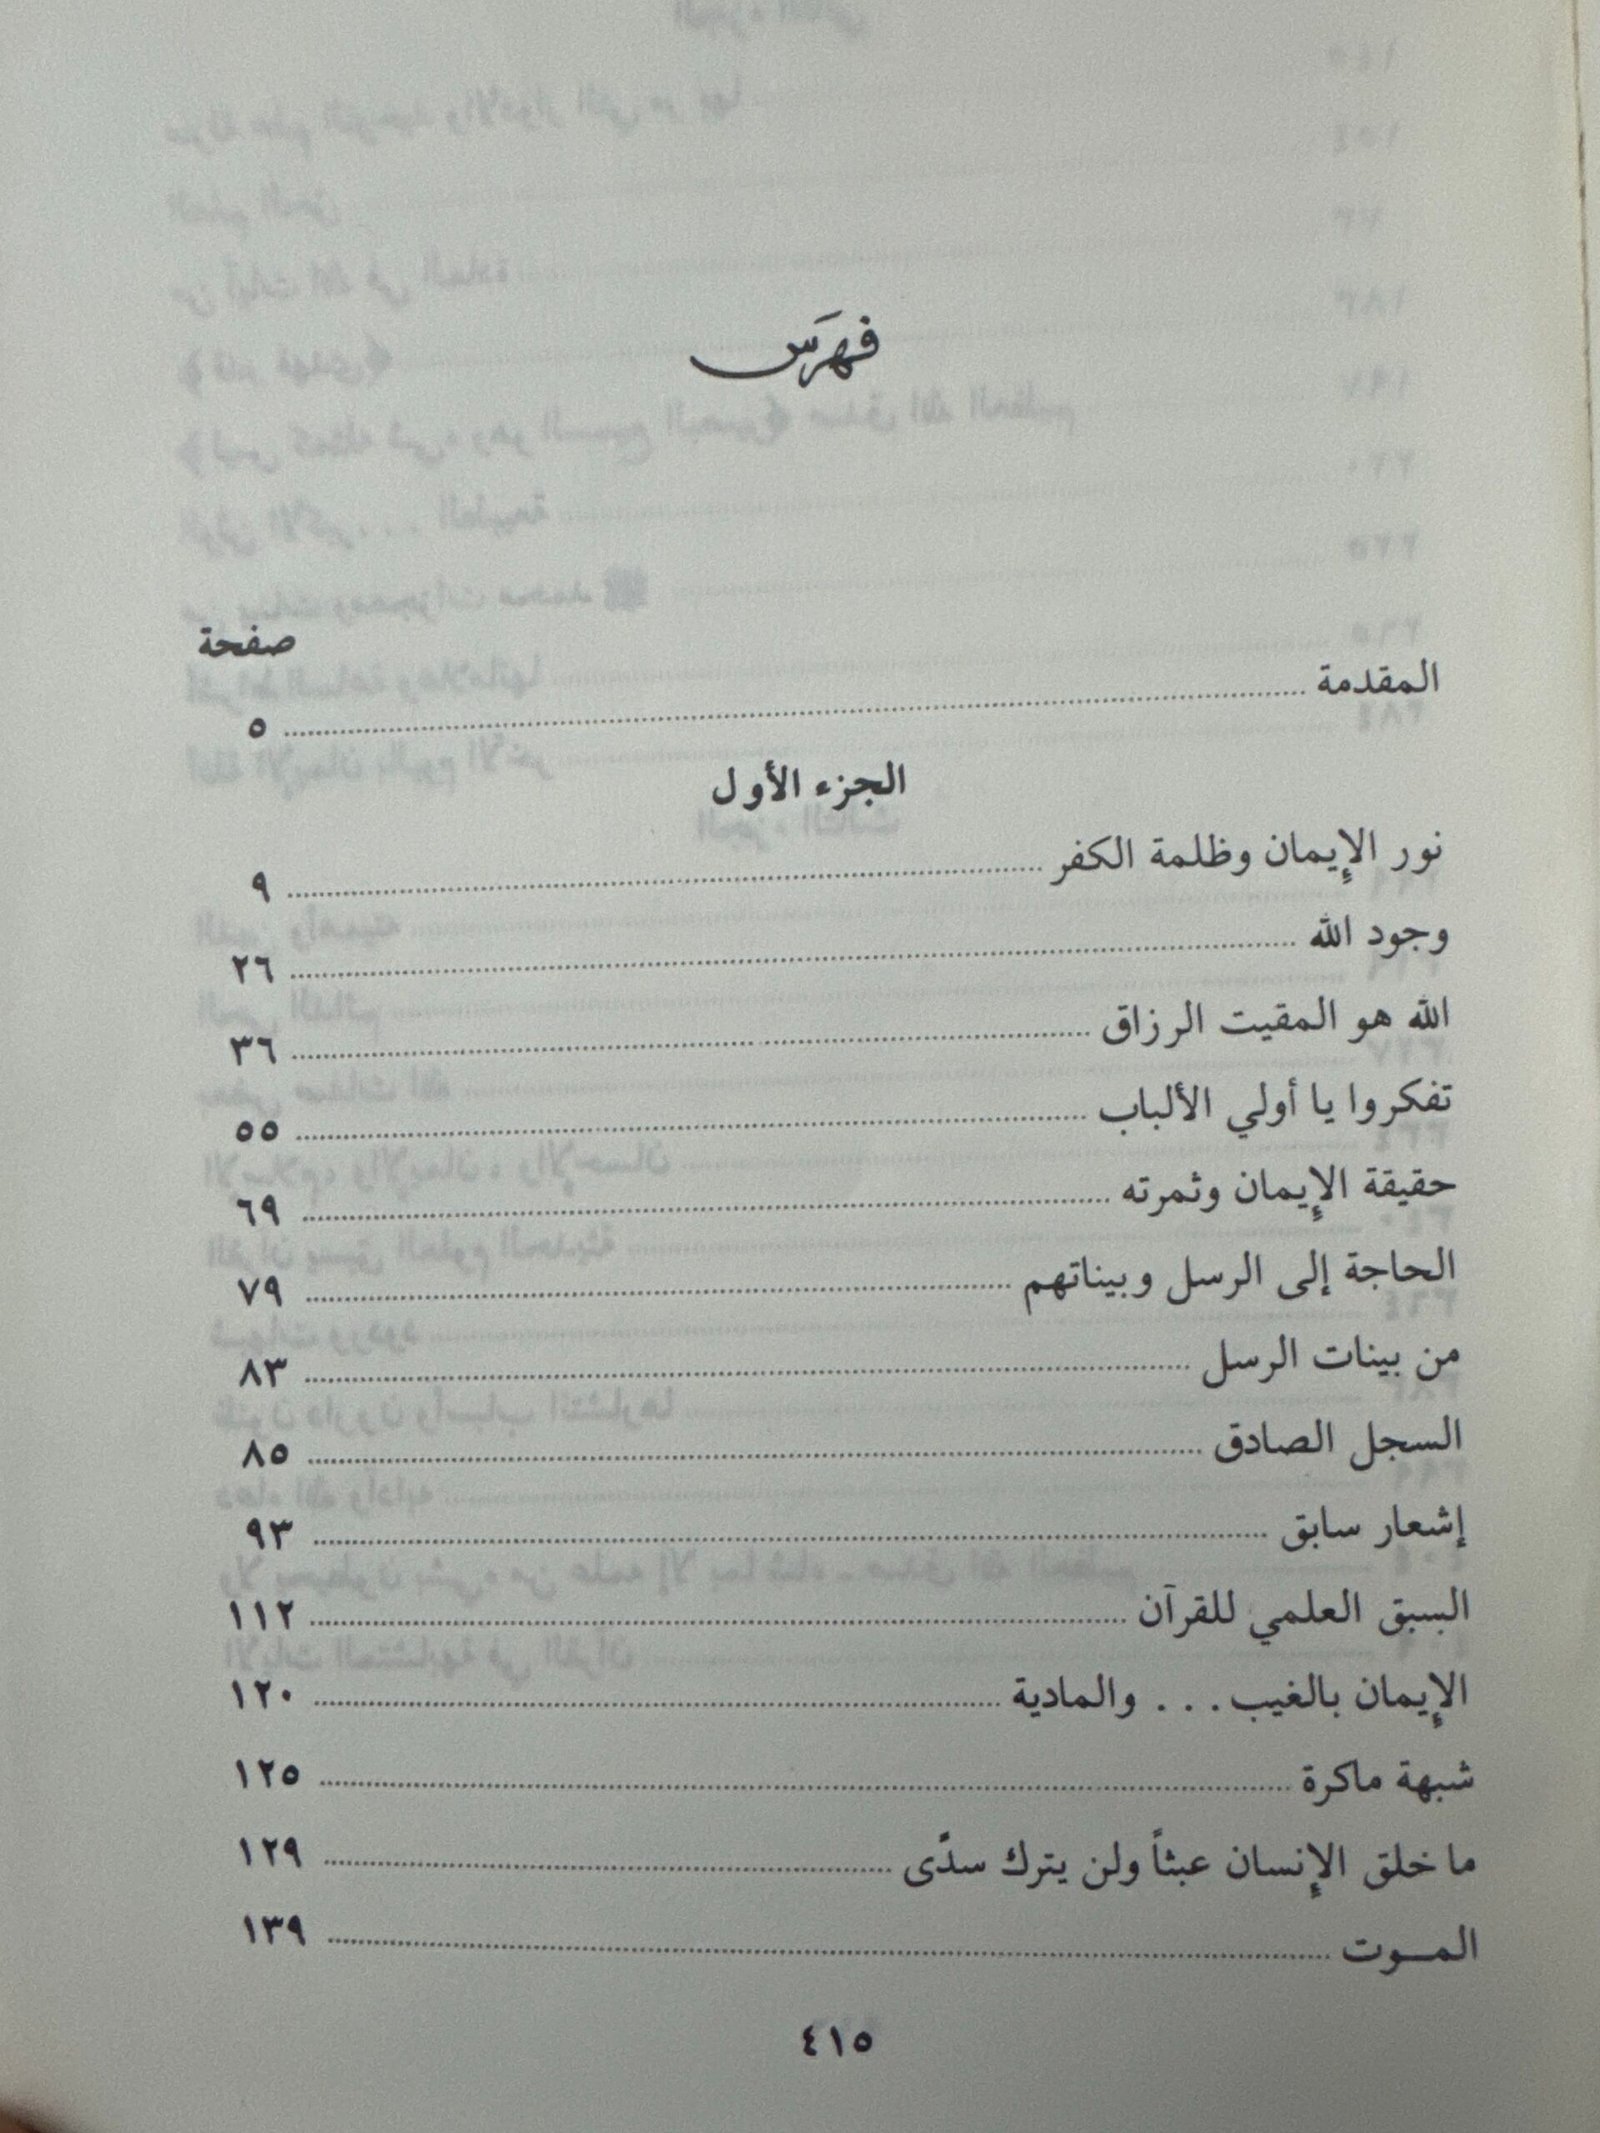 فهرَس
صفحة
المقدمة ........ ٥
الجزء الأول
نور الإيمان وظلمة الكفر ........ ٩
وجود الله ........ ٢٦
الله هو المقيت الرزاق ........ ٣٦
تفكروا يا أولي الألباب ........ ٥٥
حقيقة الإيمان وثمرته ........ ٦٩
الحاجة إلى الرسل وبيناتهم ........ ٧٩
من بينات الرسل ........ ٨٣
السجل الصادق ........ ٨٥
إشعار سابق ........ ٩٣
السبق العلمي للقرآن ........ ١١٢
الإيمان بالغيب . . . والمادية ........ ١٢٠
شبهة ماكرة ........ ١٢٥
ما خلق الإنسان عبثاً ولن يترك سدًى ........ ١٢٩
المـوت ........ ١٣٩
٤١٥